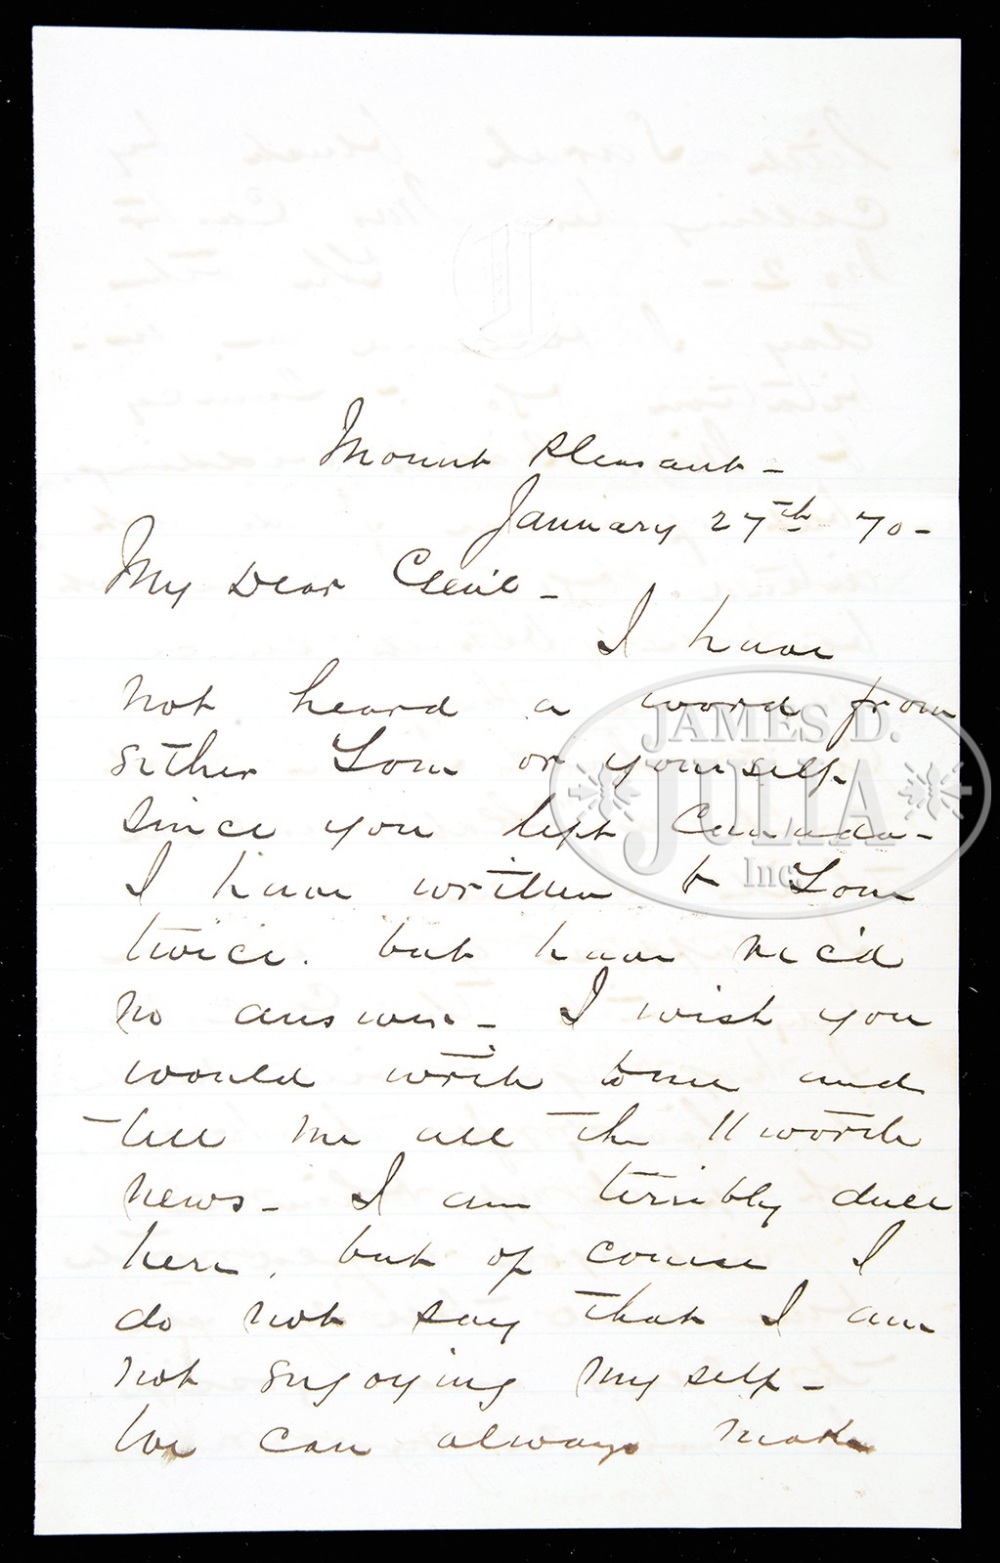 Mount Pleasant -
January 27th 70 -
My Dear Cecil -
I have
not heard a word from
either Tom or yourself
since you left Canada -
I have written to Tom
twice. but have rec'd
no answer - I wish you
would write to me and
tell me all the worth
news - I am terribly dull
here. but of course I
do not say that I am
not enjoying myself -
We can always make
JAMES D.
JULIA
Inc.